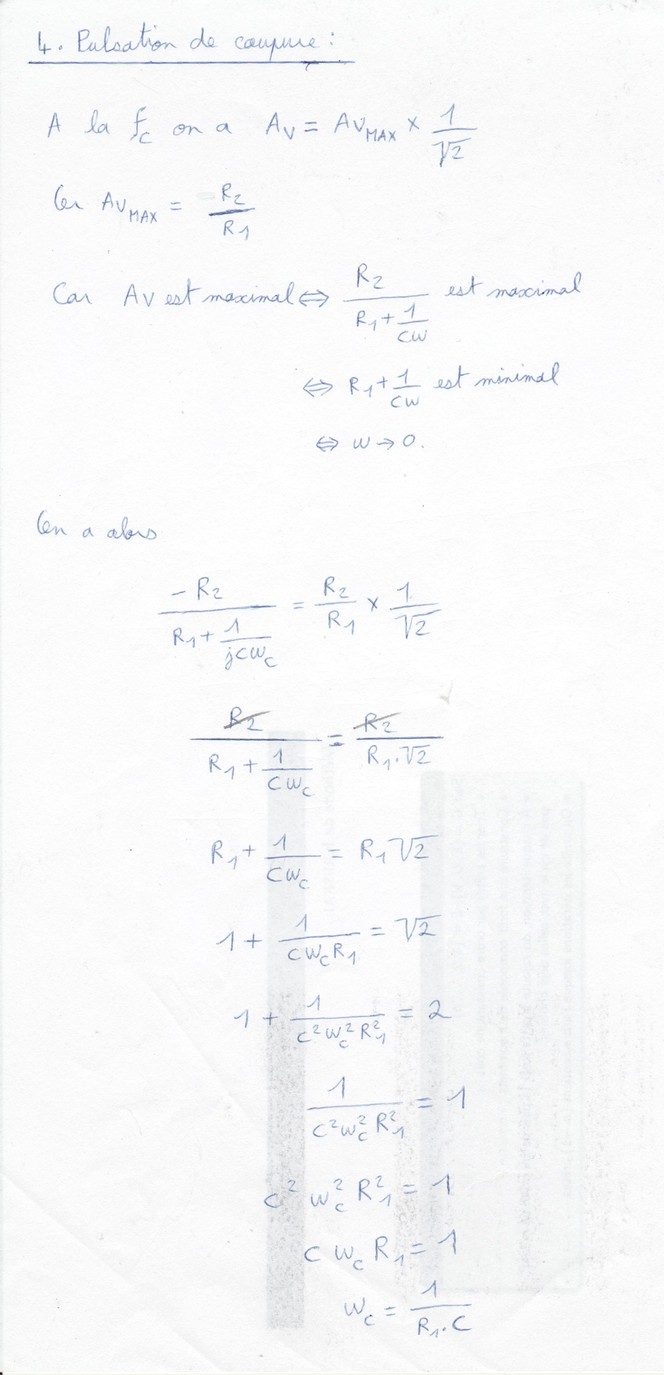 4. Pulsation de coupure :
A la fc on a Av = Av_MAX × 1/√2
On Av_MAX = R2/R1
Car Av est maximal ⇔ R2/(R1 + 1/CW) est maximal
⇔ R1 + 1/CW est minimal
⇔ W → 0.
On a alors
-R2/(R1 + 1/jCWc) = R2/R1 × 1/√2
R2/(R1 + 1/CWc) = R2/(R1.√2)
R1 + 1/CWc = R1√2
1 + 1/(CWcR1) = √2
1 + 1/(C²Wc²R1²) = 2
1/(C²Wc²R1²) = 1
C² Wc² R1² = 1
C Wc R1 = 1
Wc = 1/(R1.C)